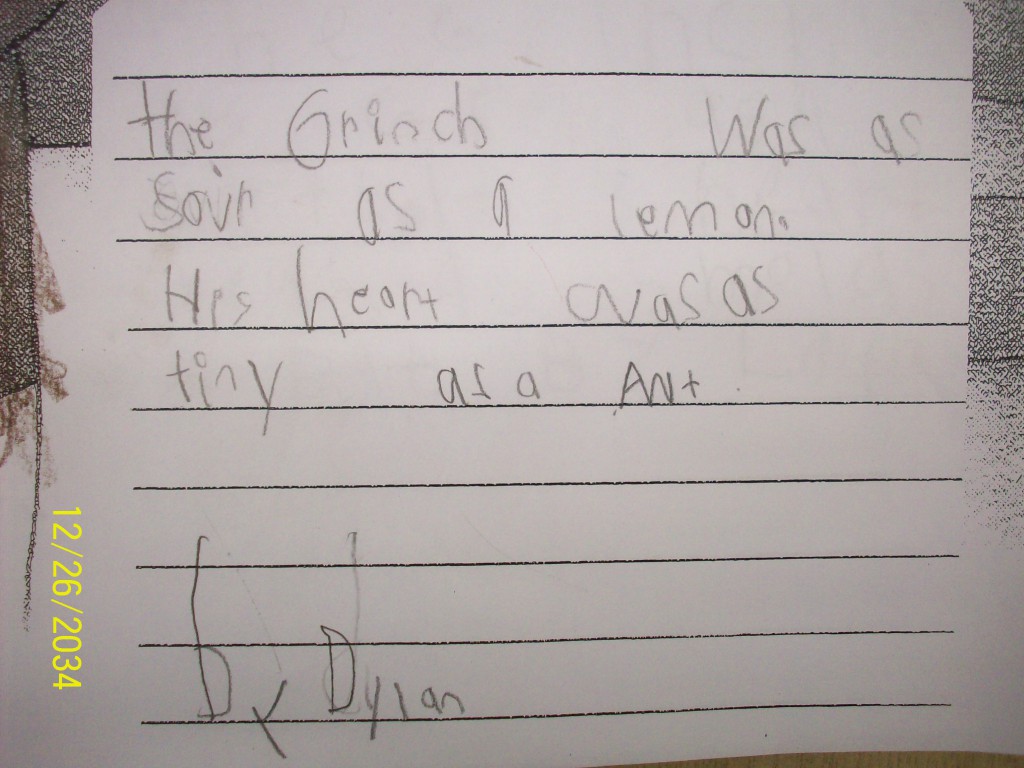 the Grinch Was as
sour as a lemon.
His heart was as
tiny as a ANt.
Dy Dylan
12/26/2034